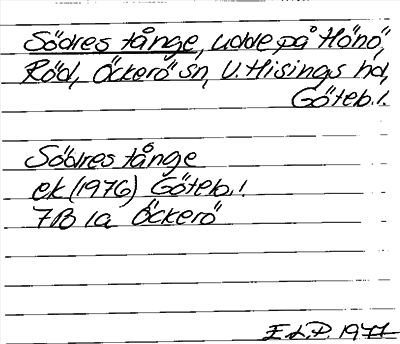 Södres tånge, udde på Hönö,
Röd, Öckerö sn, V. Hisings hd,
Göteb.l.
Södres tånge
ek (1976) Göteb.l.
7B 1a Öckerö
E.L.P. 1977